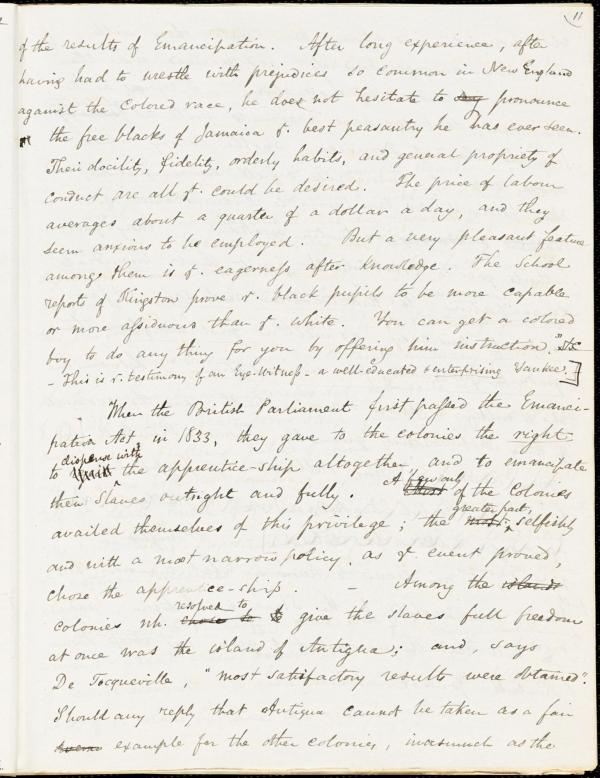 11
of the results of Emancipation. After long experience, after
having had to wrestle with prejudices so common in New England
against the Colored race, he does not hesitate to say pronounce
the free blacks of Jamaica ye. best peasantry he has ever seen.
Their docility, fidelity, orderly habits, and general propriety of
conduct are all yt. could be desired. The price of labour
averages about a quarter of a dollar a day, and they
seem anxious to be employed. But a very pleasant feature
among them is ye. eagerness after knowledge. The School
reports of Kingston prove ye. black pupils to be more capable
or more assiduous than ye. white. You can get a colored
boy to do any thing for you by offering him instruction."
- This is ye. testimony of an Eye-Witness - a well-educated & enterprising Yankee. -]
When the British Parliament first passed the Emanci-
pation Act, in 1833, they gave to the colonies the right
dispense with
to the apprentice-ship altogether, and to emancipate
A few only
their Slaves outright and fully. of the Colonies
greater part,
availed themselves of this privilege; the most, selfishly
and with a most narrow policy, as ye. event proved,
chose the apprentice-ship. - Among the islands
resolved to
colonies wh. chose to give the slaves full freedom
at once was the island of Antigua; and, says
De Tocqueville, "most satisfactory results were obtained".
Should any reply that Antigua cannot be taken as a fair
example for the other colonies, inasmuch as the